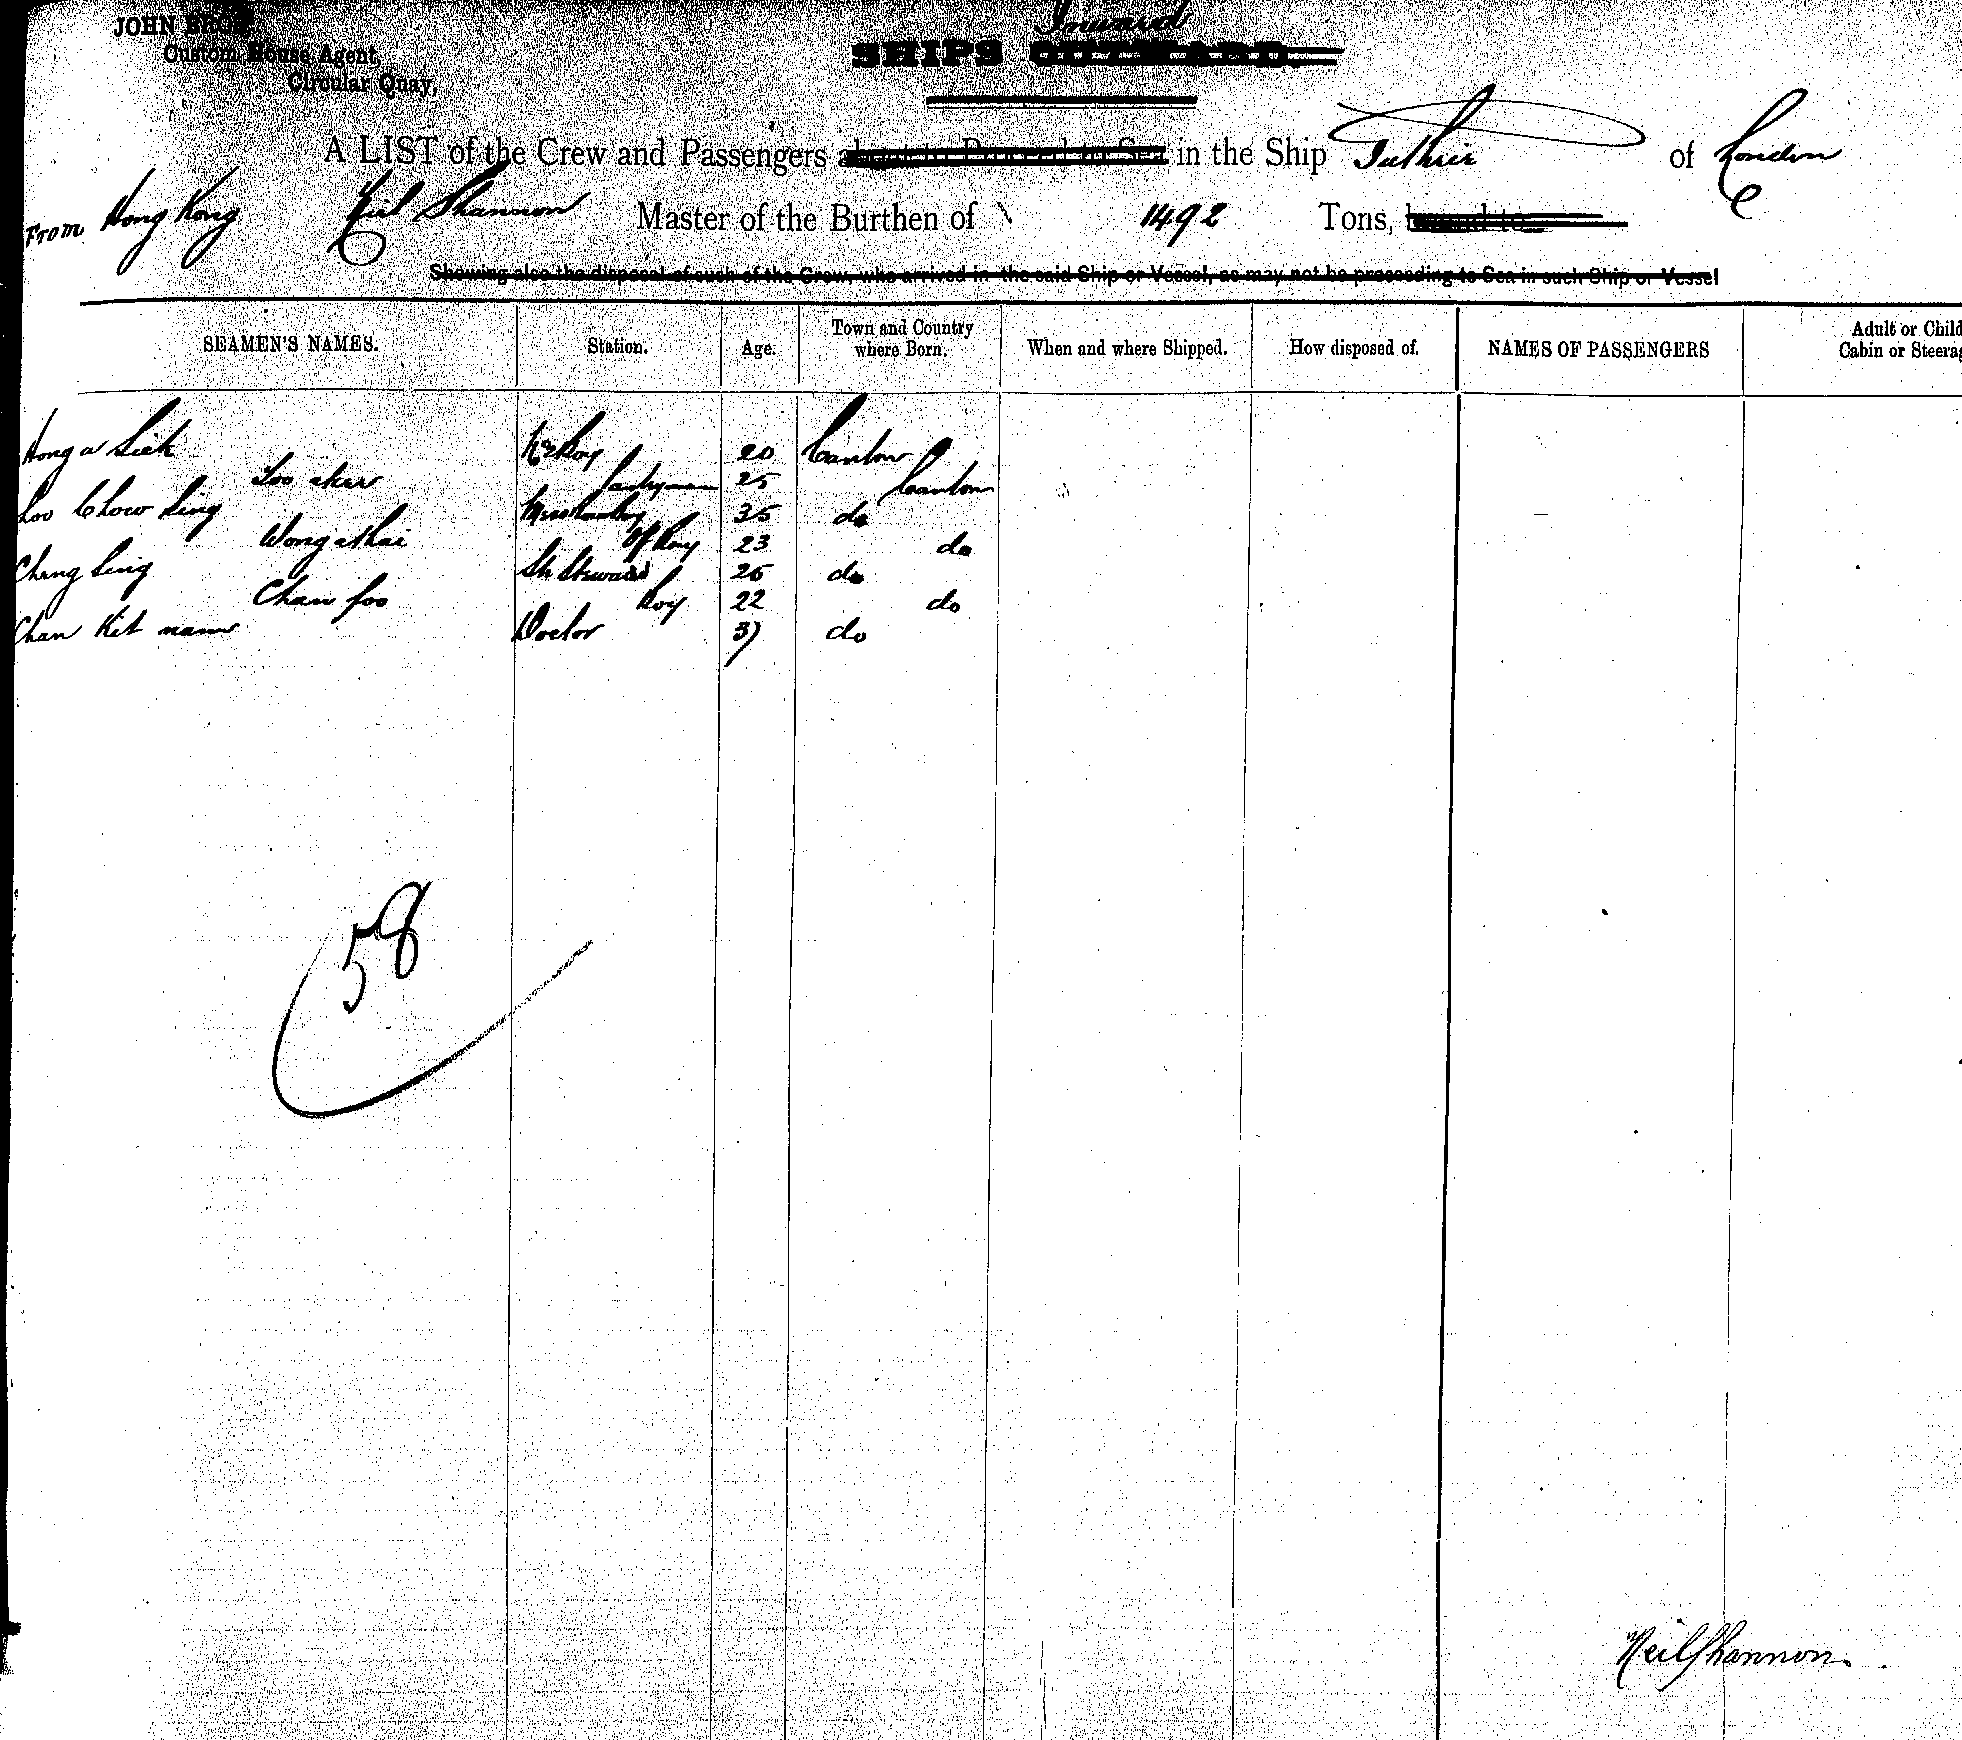 JOHN
Custom House Agent,
Circular Quay,
Inward
SHIPS OUTWARD.
A LIST of the Crew and Passengers about to Proceed to Sea in the Ship Guthrie of London
From Hong Kong Neil Shannon Master of the Burthen of 1492 Tons, bound to
Showing also the disposal of such of the Crew, who arrived in the said Ship or Vessel, as may not be proceeding to Sea in such Ship or Vessel
SEAMEN'S NAMES. Station. Age. Town and Country where Born. When and where Shipped. How disposed of. NAMES OF PASSENGERS Adult or Child Cabin or Steerag
Hong a Sick Boy 20 Canton
25 Canton
Loo Chow Sing 35 do
Wong a Thai Boy 23 do
Cheng Sing Steward 26 do
Chan foo Boy 22 do
Chan Kit Doctor 37 do
58
Neil Shannon.